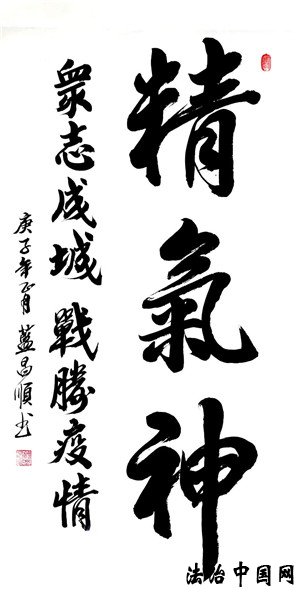 精氣神
眾志成城 戰勝疫情
庚子年正月 藍昌順书
法治中国网